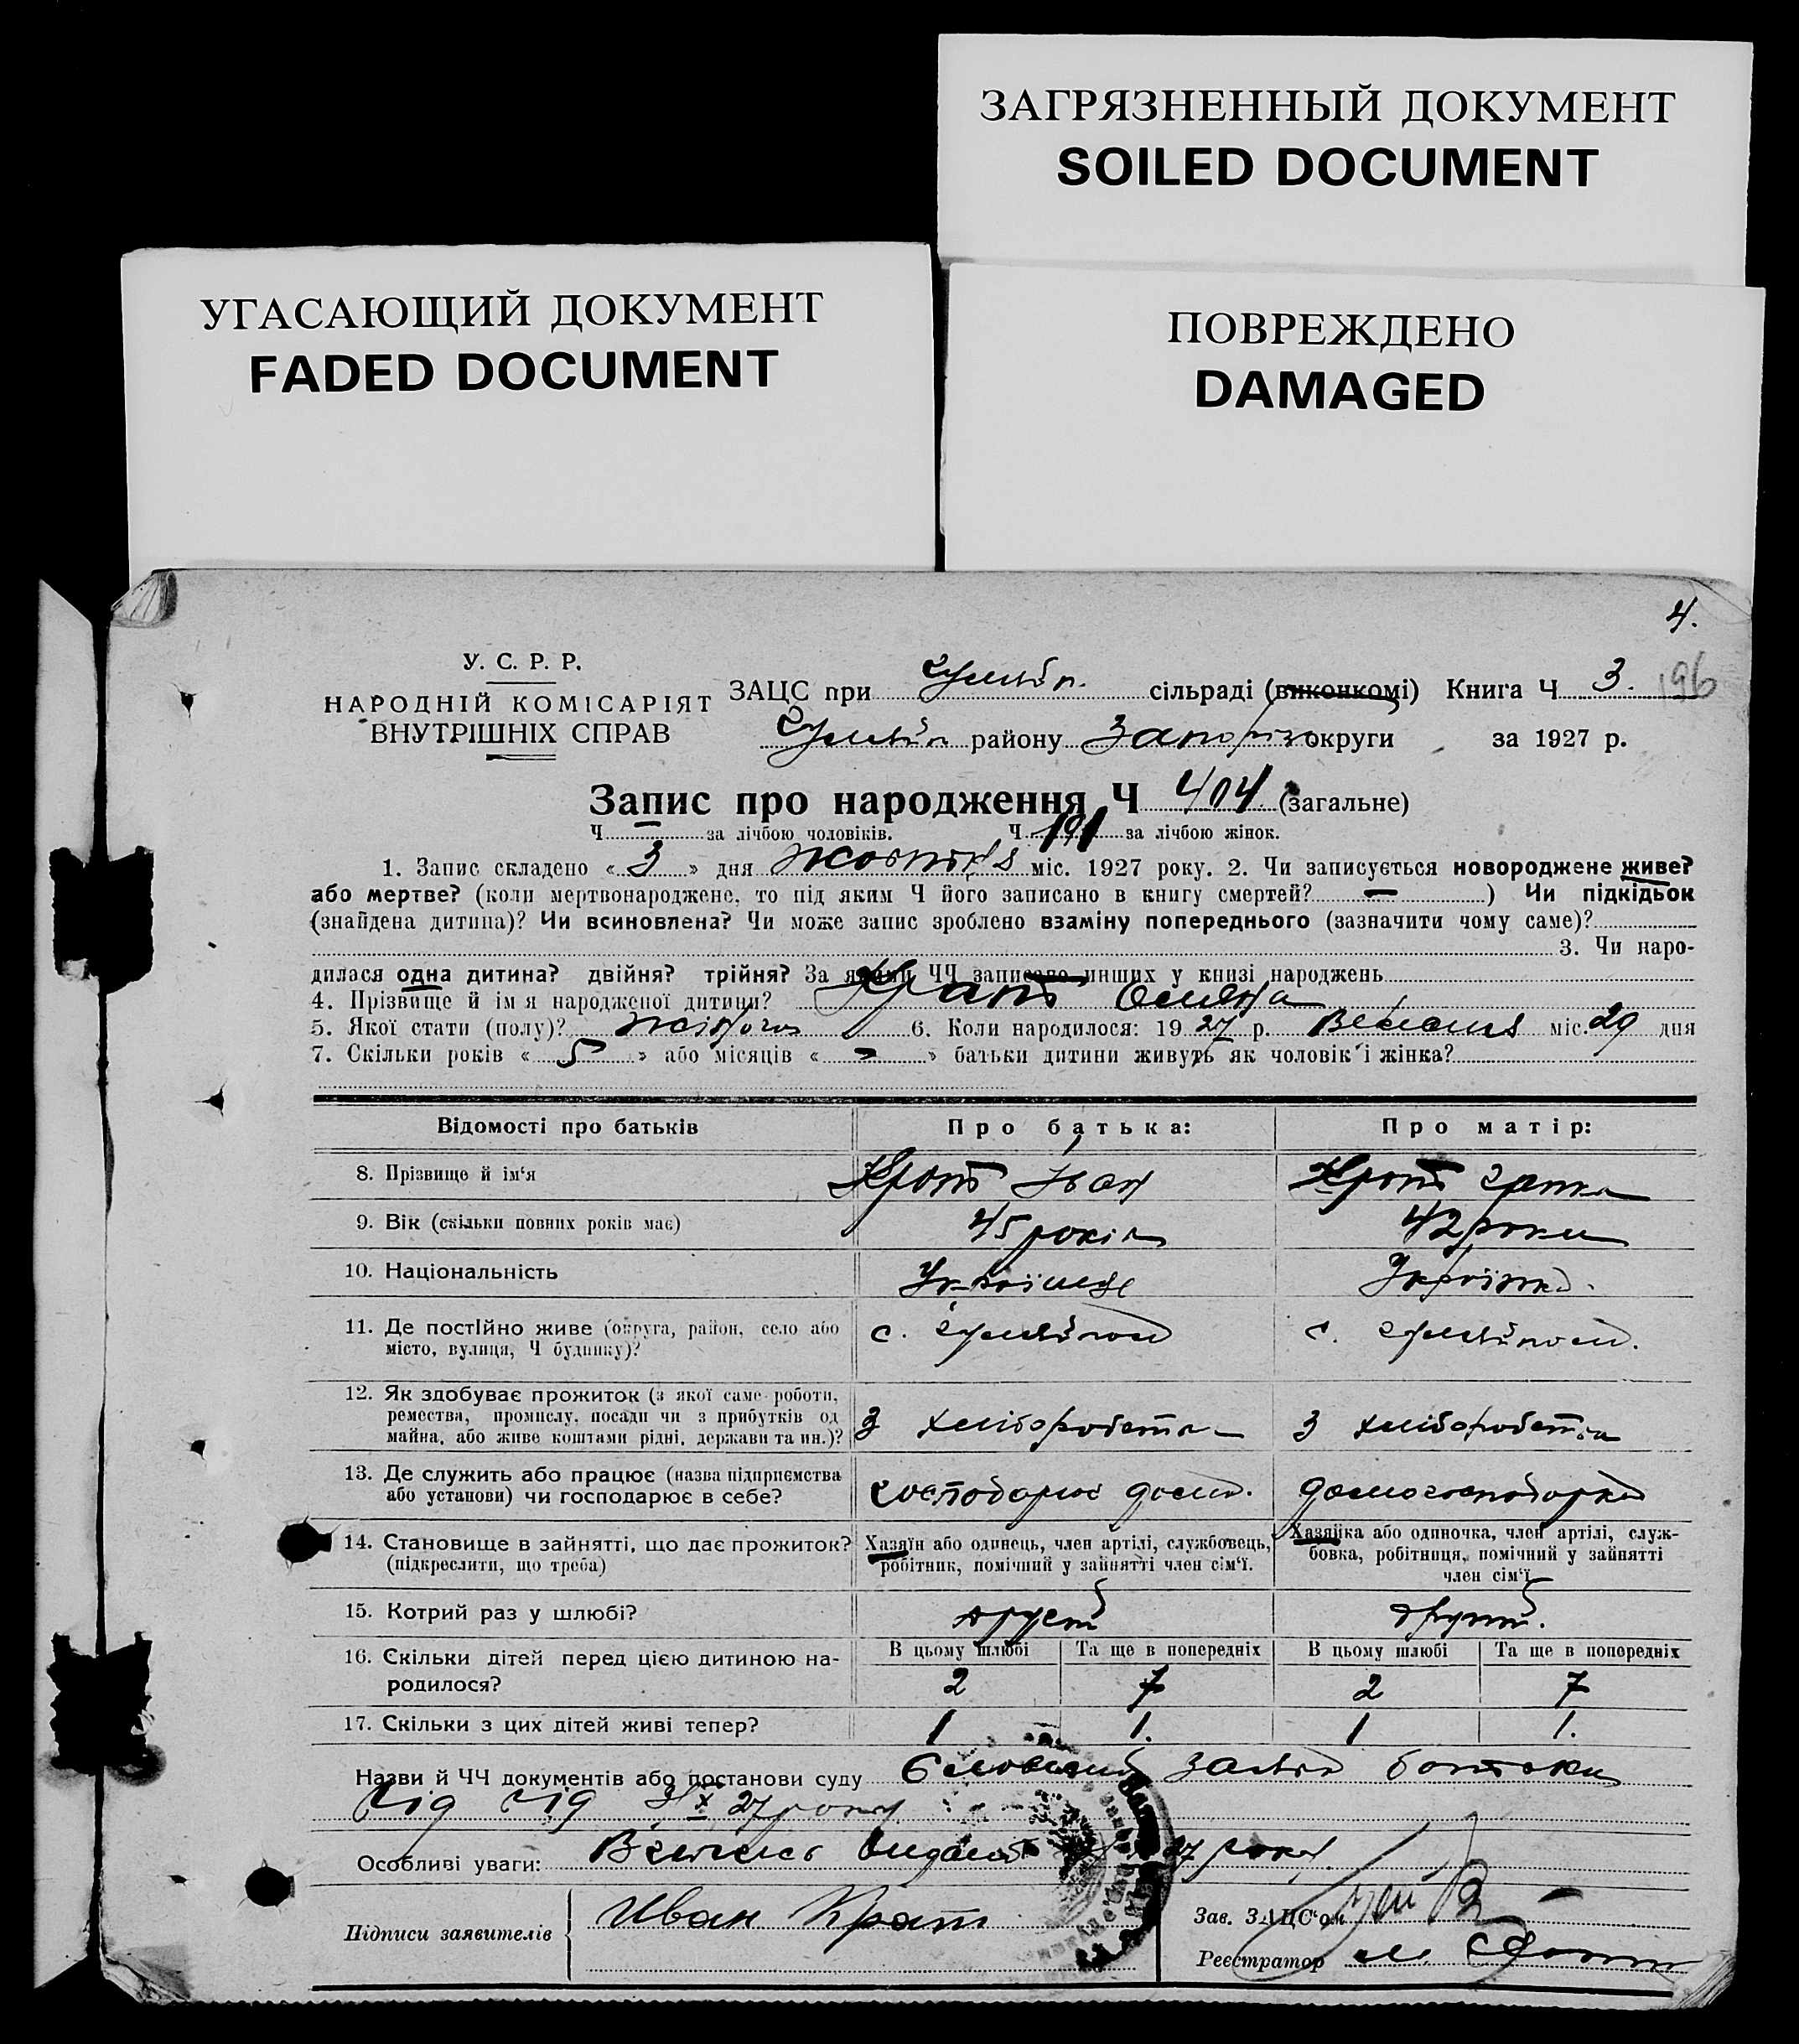 ЗАГРЯЗНЕННЫЙ ДОКУМЕНТ
SOILED DOCUMENT
УГАСАЮЩИЙ ДОКУМЕНТ
FADED DOCUMENT
ПОВРЕЖДЕНО
DAMAGED
4.
У. С. Р. Р.
НАРОДНІЙ КОМІСАРІЯТ
ВНУТРІШНІХ СПРАВ
ЗАЦС при Гуляйп. сільраді (виконкомі) Книга Ч 3. 196
Гуляйп району Запоріз округи за 1927 р.
Запис про народження Ч 404 (загальне)
Ч — за лічбою чоловіків. Ч 191 за лічбою жінок.
1. Запис складено « 3 » дня Жовтня міс. 1927 року. 2. Чи записується новороджене живе?
або мертве? (коли мертвонароджене, то під яким Ч його записано в книгу смертей? — ) Чи підкідьок
(знайдена дитина)? Чи всиновлена? Чи може запис зроблено взаміну попереднього (зазначити чому саме)?
3. Чи наро-
дилася одна дитина? двійня? трійня? За якими ЧЧ записано инших у книзі народжень
4. Прізвище й ім я народженої дитини? Крат
5. Якої стати (полу)? жіночої 6. Коли народилося: 19 27 р. Вересня міс. 29 дня
7. Скільки років « 5 » або місяців « - » батьки дитини живуть як чоловік і жінка?
Відомості про батьків Про батька: Про матір:
8. Прізвище й ім'я Крат Іван Крат Ганна
9. Вік (скільки повних років має) 45 років 42 роки
10. Національність Українец Українка.
11. Де постІйно живе (округа, район, село або с. Гуляйполе с. Гуляйполе.
місто, вулиця, Ч будинку)?
12. Як здобуває прожиток (з якої саме роботи,
ремества, промислу, посади чи з прибутків од
майна, або живе коштами рідні, держави та ин.)? З хліборобства З хліборобства
13. Де служить або працює (назва підприємства
або установи) чи господарює в себе? господарює дома. домогосподарка
14. Становище в зайнятті, що дає прожиток? Хазяїн або одинець, член артілі, службовець, Хазяйка або одиночка, член артілі, служ-
(підкреслити, що треба) робітник, помічний у зайнятті член сім'ї. бовка, робітниця, помічний у зайнятті
член сім'ї
15. Котрий раз у шлюбі? другий другий.
В цьому шлюбі Та ще в попередніх В цьому шлюбі Та ще в попередніх
16. Скільки дітей перед цією дитиною на-
родилося? 2 7 2 7
17. Скільки з цих дітей живі тепер? 1 1. 1 1.
Назви й ЧЧ документів або постанови суду Словесна заява батька
27 року
Особливі уваги: Витяг видано 27 року.
Підписи заявителів Иван Крат
Зав. ЗАЦС'ом
Реєстратор